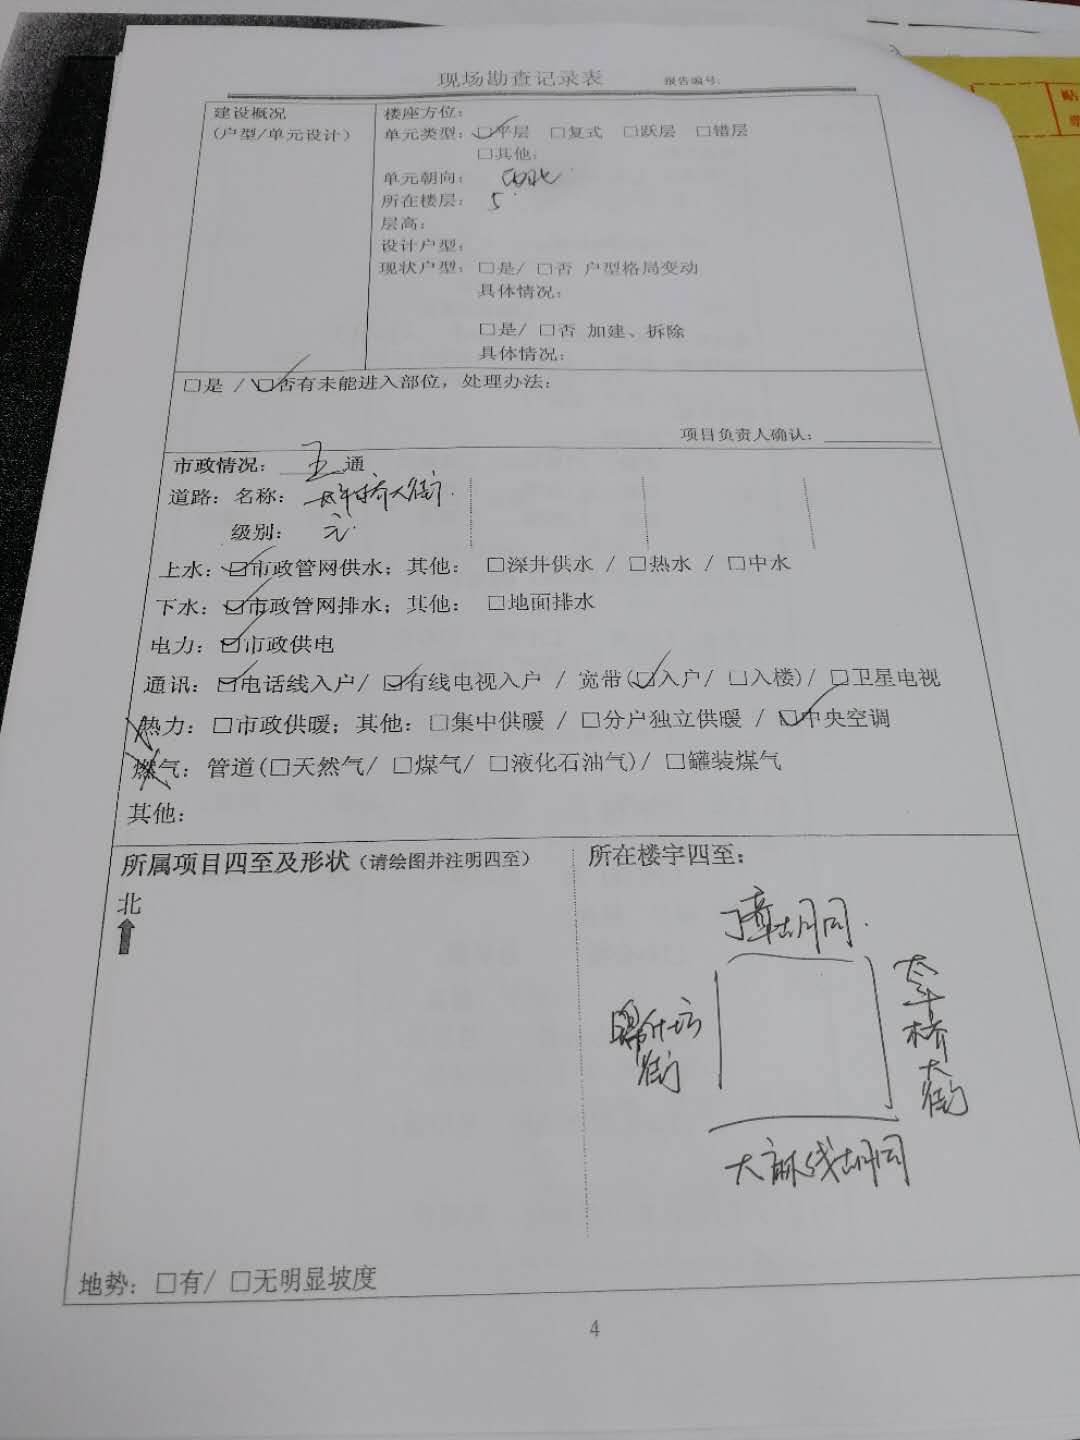 现场勘查记录表 报告编号:
建设概况
(户型/单元设计)
楼座方位:
单元类型: ☑平层 □复式 □跃层 □错层
□其他:
单元朝向:
所在楼层: 5
层高:
设计户型:
现状户型: □是/ □否 户型格局变动
具体情况:
□是/ □否 加建、拆除
具体情况:
□是 / ☑否有未能进入部位，处理办法:
项目负责人确认:
市政情况: 五 通
道路: 名称: 太平桥大街
级别:
上水: ☑市政管网供水; 其他: □深井供水 / □热水 / □中水
下水: ☑市政管网排水; 其他: □地面排水
电力: ☑市政供电
通讯: ☑电话线入户/ ☑有线电视入户 / 宽带(☑入户/ □入楼)/ □卫星电视
热力: □市政供暖; 其他: □集中供暖 / □分户独立供暖 / ☑中央空调
燃气: 管道(□天然气/ □煤气/ □液化石油气)/ □罐装煤气
其他:
所属项目四至及形状（请绘图并注明四至）
北
所在楼宇四至:
丁章胡同
锦什坊
街
太平桥大街
大麻线胡同
地势: □有/ □无明显坡度
4